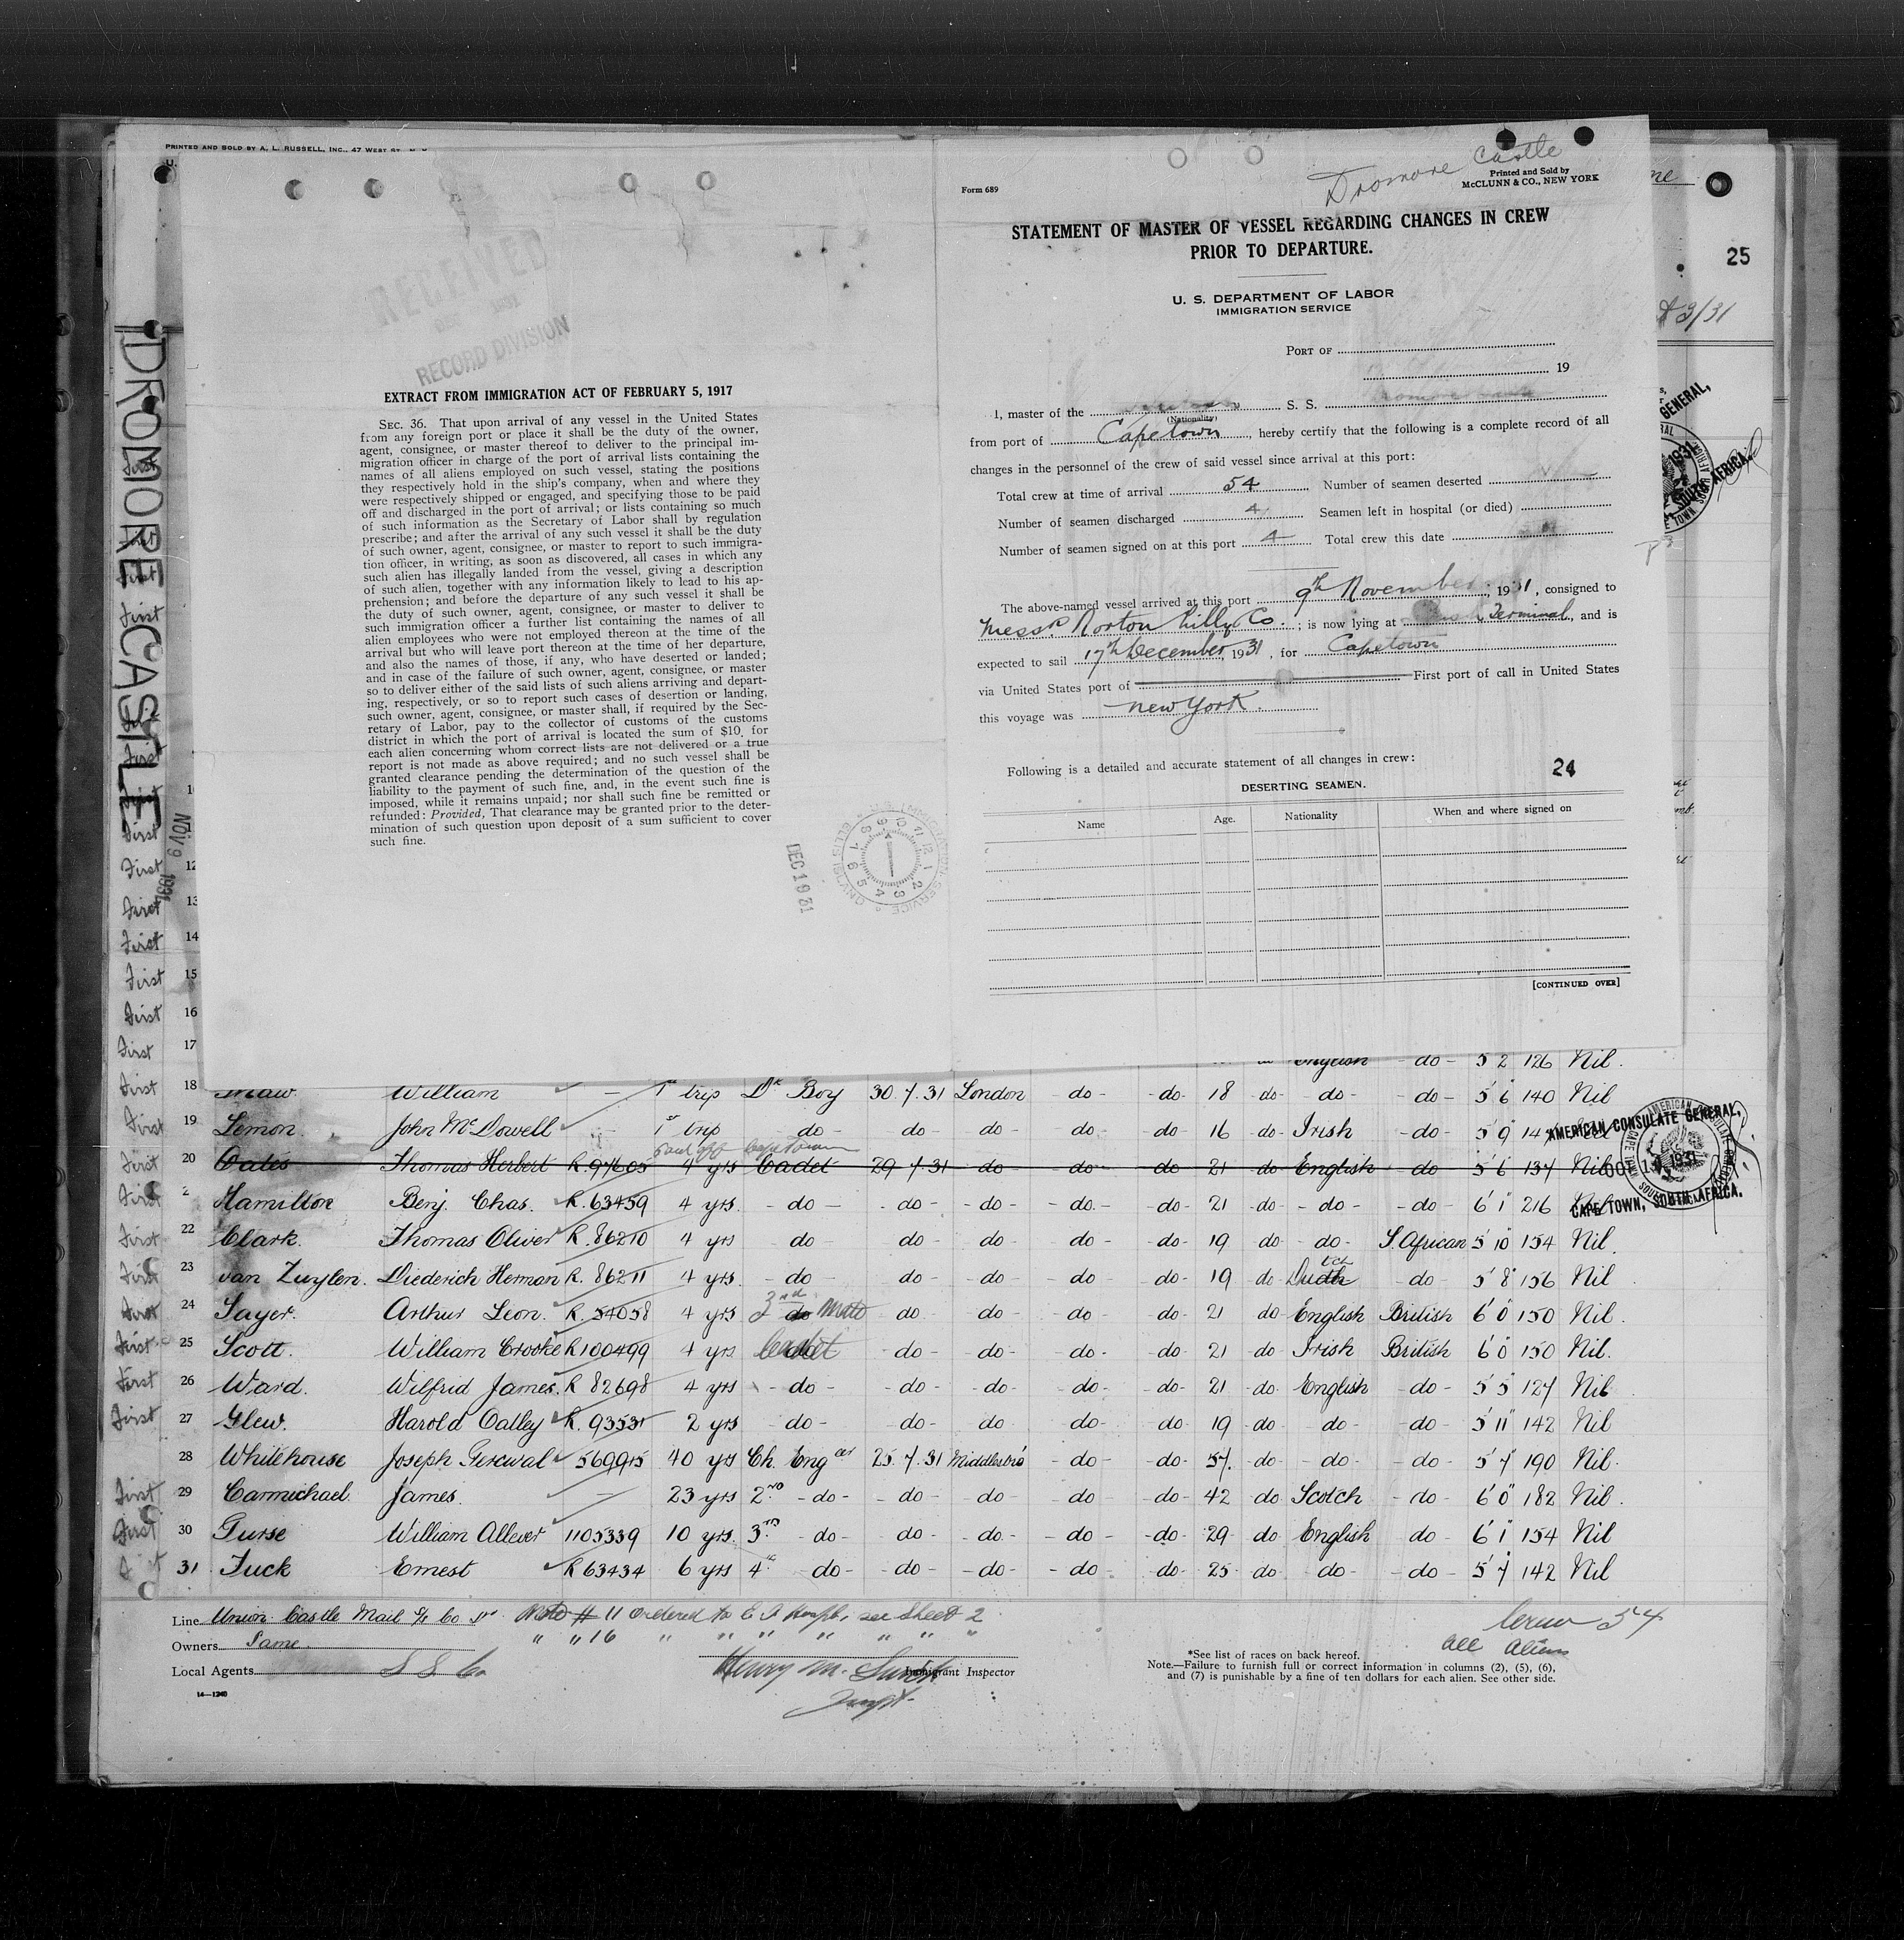 PRINTED AND SOLD BY A. L. RUSSELL, INC., 47 WEST ST.
RECEIVED
RECORD DIVISION
EXTRACT FROM IMMIGRATION ACT OF FEBRUARY 5, 1917
SEC. 36. That upon arrival of any vessel in the United States
from any foreign port or place it shall be the duty of the owner,
agent, consignee, or master thereof to deliver to the principal im-
migration officer in charge of the port of arrival lists containing the
names of all aliens employed on such vessel, stating the positions
they respectively hold in the ship's company, when and where they
were respectively shipped or engaged, and specifying those to be paid
off and discharged in the port of arrival; or lists containing so much
of such information as the Secretary of Labor shall by regulation
prescribe; and after the arrival of any such vessel it shall be the duty
of such owner, agent, consignee, or master to report to such immigra-
tion officer, in writing, as soon as discovered, all cases in which any
such alien has illegally landed from the vessel, giving a description
of such alien, together with any information likely to lead to his ap-
prehension; and before the departure of any such vessel it shall be
the duty of such owner, agent, consignee, or master to deliver to
such immigration officer a further list containing the names of all
alien employees who were not employed thereon at the time of the
arrival but who will leave port thereon at the time of her departure,
and also the names of those, if any, who have deserted or landed;
and in case of the failure of such owner, agent, consignee, or master
so to deliver either of the said lists of such aliens arriving and depart-
ing, respectively, or so to report such cases of desertion or landing,
such owner, agent, consignee, or master shall, if required by the Sec-
retary of Labor, pay to the collector of customs of the customs
district in which the port of arrival is located the sum of $10 for
each alien concerning whom correct lists are not delivered or a true
report is not made as above required; and no such vessel shall be
granted clearance pending the determination of the question of the
liability to the payment of such fine, and, in the event such fine is
imposed, while it remains unpaid; nor shall such fine be remitted or
refunded: Provided, That clearance may be granted prior to the deter-
mination of such question upon deposit of a sum sufficient to cover
such fine.
DEC 19 31
DROMORE CASTLE
NOV 9 1931
Dromore Castle
Form 689
Printed and Sold by
McCLUNN & CO., NEW YORK
STATEMENT OF MASTER OF VESSEL REGARDING CHANGES IN CREW
PRIOR TO DEPARTURE.
U. S. DEPARTMENT OF LABOR
IMMIGRATION SERVICE
PORT OF
19
I, master of the S. S.
(Nationality)
from port of Capetown, hereby certify that the following is a complete record of all
changes in the personnel of the crew of said vessel since arrival at this port:
Total crew at time of arrival 54 Number of seamen deserted
Number of seamen discharged 4 Seamen left in hospital (or died)
Number of seamen signed on at this port 4 Total crew this date
The above-named vessel arrived at this port 9th November, 1931, consigned to
Messrs Norton Lilly Co.; is now lying at Terminal, and is
expected to sail 17th December, 1931, for Capetown
via United States port of First port of call in United States
this voyage was New York.
Following is a detailed and accurate statement of all changes in crew: 24
DESERTING SEAMEN.
Name Age. Nationality When and where signed on
[CONTINUED OVER]
25
First 17 English - do - 5 2 126 Nil.
First 18 William - 1st trip Dk Boy 30.7.31 London - do - - do - 18 - do - - do - - do - 5 6 140 Nil
First 19 Lemon. John McDowell 1st trip do - do - - do - - do - - do - 16 - do - Irish - do - 5 9
Paid off Capetown
First 20 Oates Thomas Herbert R.97605 4 yrs Cadet 29.7.31 do do do 21 do English do 5 6 137 Nil
First Hamilton Benj. Chas. R.63459 4 yrs. - do - - do - - do - - do - - do - 21 - do - - do - - do - 6 1 216 Nil
First 22 Clark. Thomas Oliver R.86210 4 yrs do - do - - do - - do - - do - 19 do - do - S. African 5 10 154 Nil.
First 23 van Zuylen. Diederich Herman R.86211 4 yrs. - do - do - - do - - do - - do - 19 do Dutch - do - 5 8 156 Nil
First 24 Sayer. Arthur Leon. R.54058 4 yrs 3rd Mate do - - do - - do - - do - 21 do English British 6 0 150 Nil.
First 25 Scott. William Crooke R100499 4 yrs Cadet - do - - do - - do - - do - 21 do Irish British 6 0 150 Nil.
First 26 Ward. Wilfrid James. R 82698 4 yrs - do - - do - - do - - do - - do - 21 do English - do - 5 5 127 Nil
First 27 Glew. Harold Oatley R.93531 2 yrs - do - - do - - do - do - - do 19 - do - do - - do - 5 11 142 Nil
28 Whitehouse Joseph Percival 569915 40 yrs Ch. Engeer 25.7.31 Middlesbro - do - - do - 57. - do - - do - - do - 5 7 190 Nil.
First 29 Carmichael. James. - 23 yrs 2nd - do - - do - - do - - do - - do - 42 do Scotch - do - 6 0 182 Nil.
First 30 Purse William 1105339 10 yrs. 3rd do - do - - do - - do - - do - 29 do English do - 6 1 154 Nil
31 Tuck Ernest R 63434 6 yrs 4th do - - do - - do - - do - - do - 25 do - do - - do - 5 7 142 Nil
AMERICAN CONSULATE GENERAL,
CAPE TOWN, SOUTH AFRICA.
Line Union Castle Mail S/S Co. Note # 11 ordered to see Sheet 2
" " 16 " " " " " " "
Owners Same.
Local Agents
Henry M.
Immigrant Inspector
14—1240
*See list of races on back hereof.
Note.—Failure to furnish full or correct information in columns (2), (5), (6),
and (7) is punishable by a fine of ten dollars for each alien. See other side.
Crew 54
All Aliens